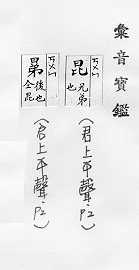 彙音寶鑑
昆
兄弟
也
ㄍㄨㄣ
(君上平聲·P2)
晜
後也
仝昆
ㄍㄨㄣ
(君上平聲·P2)